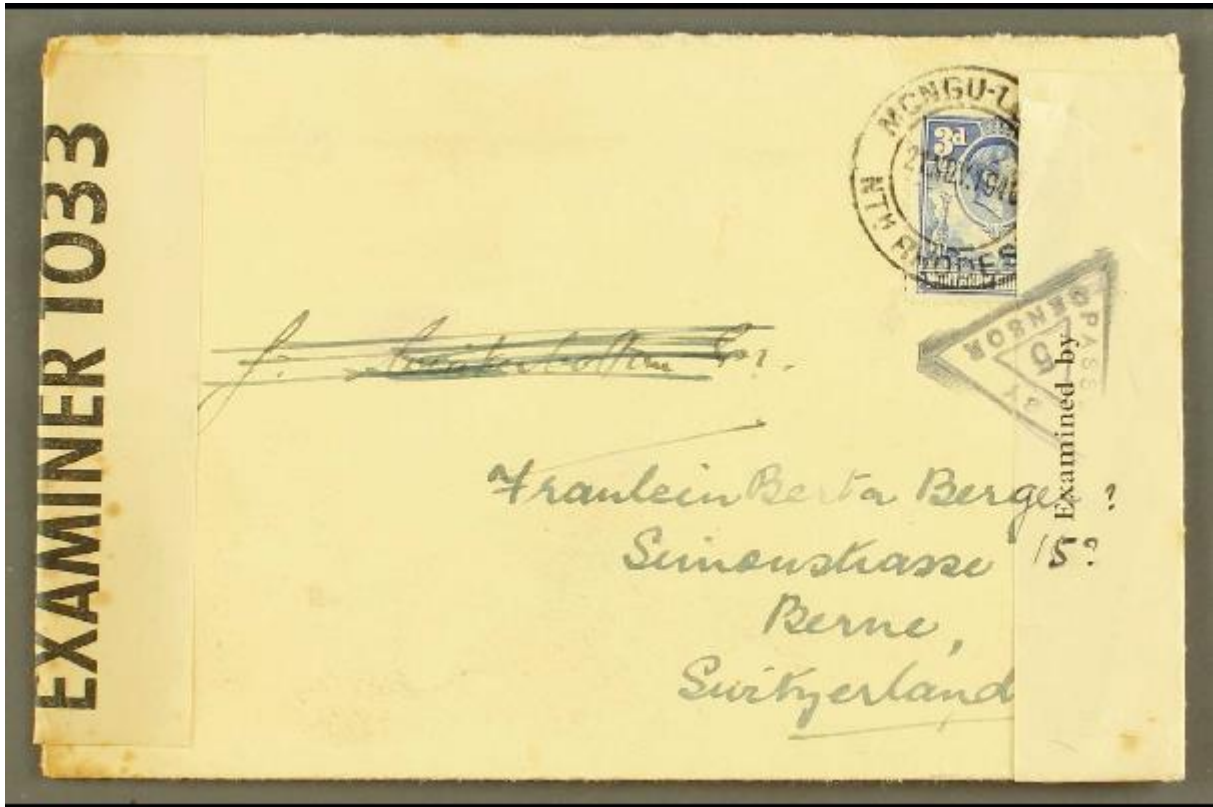 EXAMINER 1033
MONGU-L
NTH RHODES
3d
PASS
BY
CENSOR
5
Examined by
Fraulein Berta Berge ?
Simonstrasse 15?
Berne,
Switzerland